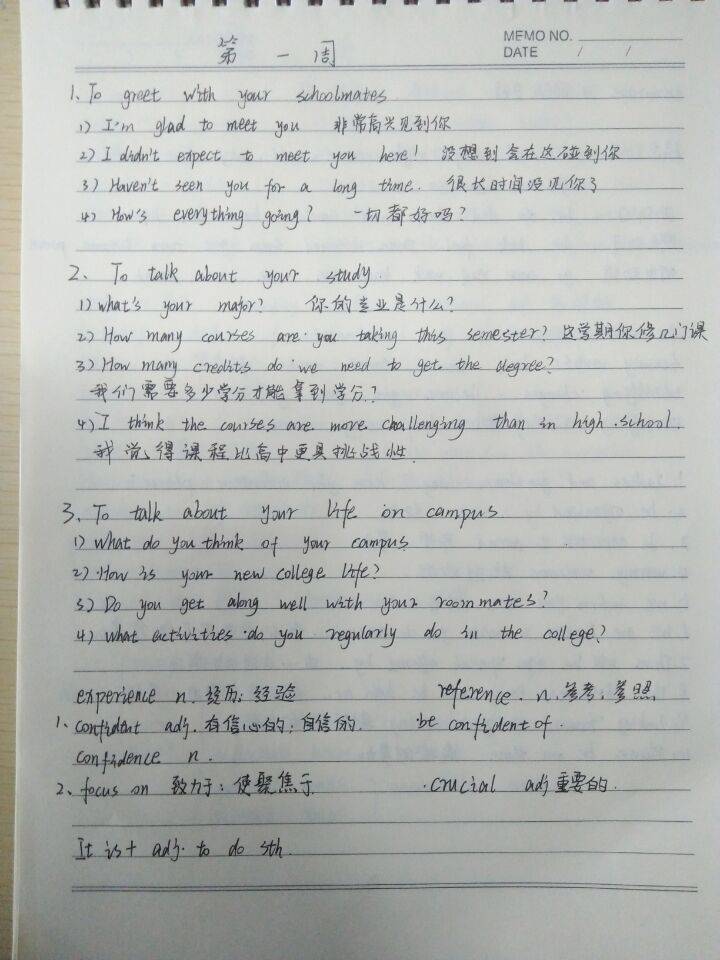 第一周
MEMO NO.
DATE / /
1、To greet with your schoolmates
1) I'm glad to meet you 非常高兴见到你
2) I didn't expect to meet you here! 没想到会在这碰到你
3) Haven't seen you for a long time. 很长时间没见你了
4) How's everything going? 一切都好吗?
2、To talk about your study.
1) what's your major? 你的专业是什么?
2) How many courses are you taking this semester? 这学期你修几门课
3) How many credits do we need to get the degree?
我们需要多少学分才能拿到学分?
4) I think the courses are more challenging than in high school.
我觉得课程比高中更具挑战性.
3、To talk about your life on campus
1) What do you think of your campus
2) How is your new college life?
3) Do you get along well with your roommates?
4) what activities do you regularly do in the college?
experience n. 经历; 经验 reference. n. 参考; 参照
1、confident adj. 有信心的; 自信的. be confident of.
confidence n.
2、focus on 致力于; 使聚焦于 crucial adj 重要的.
It is + adj. to do sth.